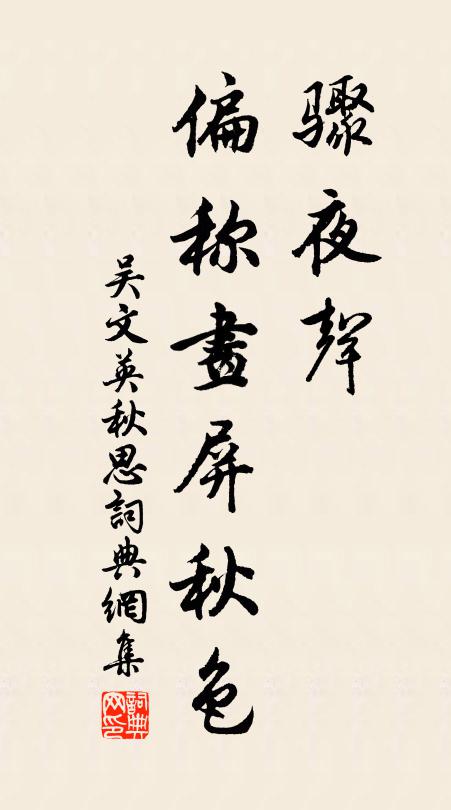 骤夜聲
偏称畫屏秋色
吴文英秋思詞典網集
詞典网印